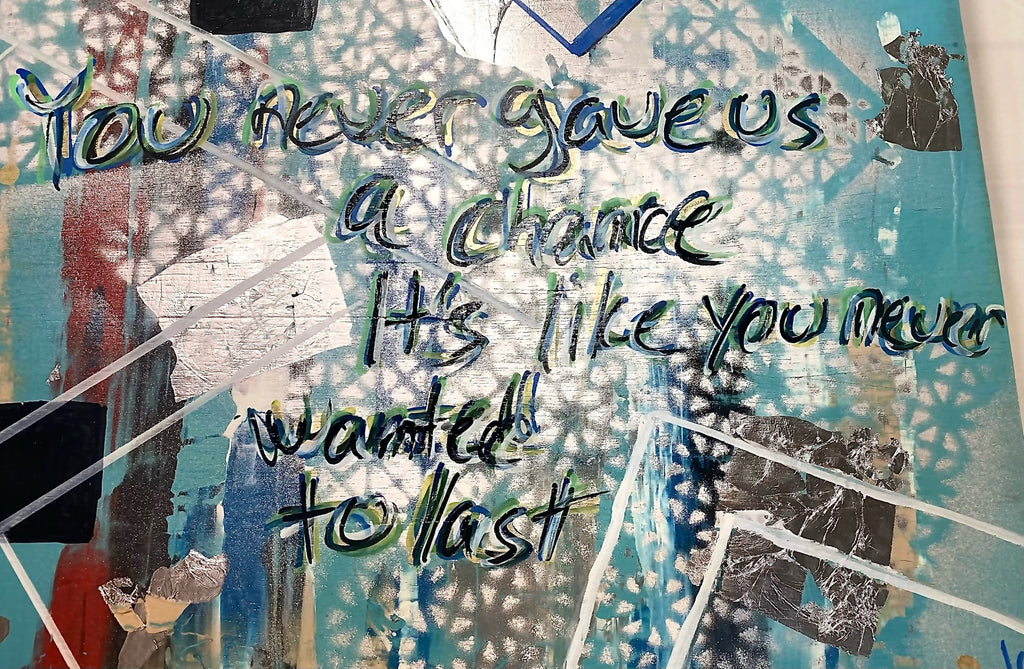 You never gave us
a chance
It's like you never
wanted
to last